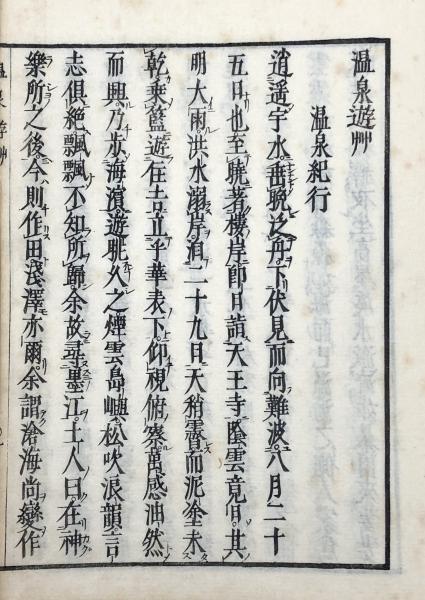 温泉遊艸
温泉紀行
逍遥宇水薄晩泛舟下伏見而向難波六月二十
五日也至曉著樓岸即日詣天王寺陰雲竟日其
明大雨洪水溺岸涯二十九日天稍霽而泥塗未
乾乗籃遊住吉立乎華表下仰視俯察萬感油然
而興乃歩海濱遊眺久之煙雲島嶼松吹浪韻言
志倶絶飄飄不知所歸余故尋墨江土人曰在神
樂所之後今則作田淺澤亦爾余謂滄海尚變作
温泉遊艸